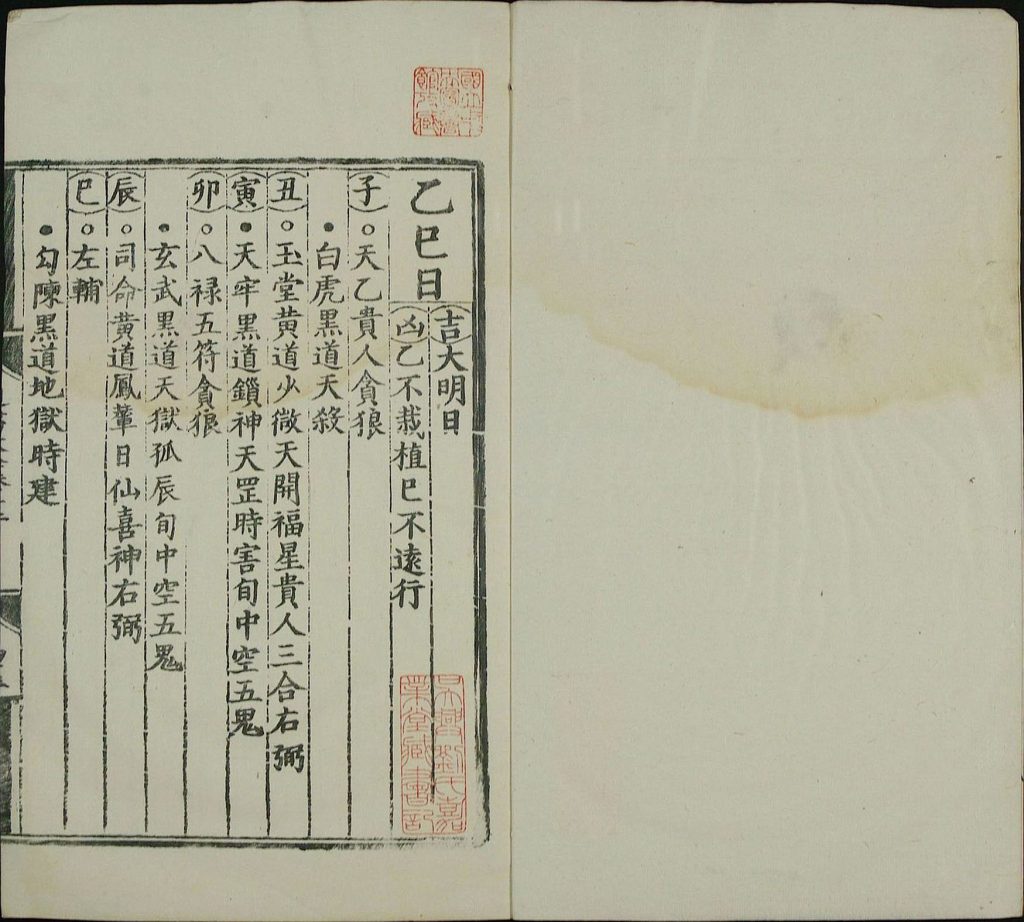 乙巳日
吉大明日
凶乙不栽植巳不遠行
子○天乙貴人貪狼
●白虎黑道天殺
丑○玉堂黄道少微天開福星貴人三合右弼
寅●天牢黑道鎖神天罡時害旬中空五鬼
卯○八禄五符貪狼
●玄武黑道天獄孤辰旬中空五鬼
辰○司命黄道鳳輦日仙喜神右弼
巳○左輔
●勾陳黑道地獄時建
吳興劉氏嘉
業堂藏書記